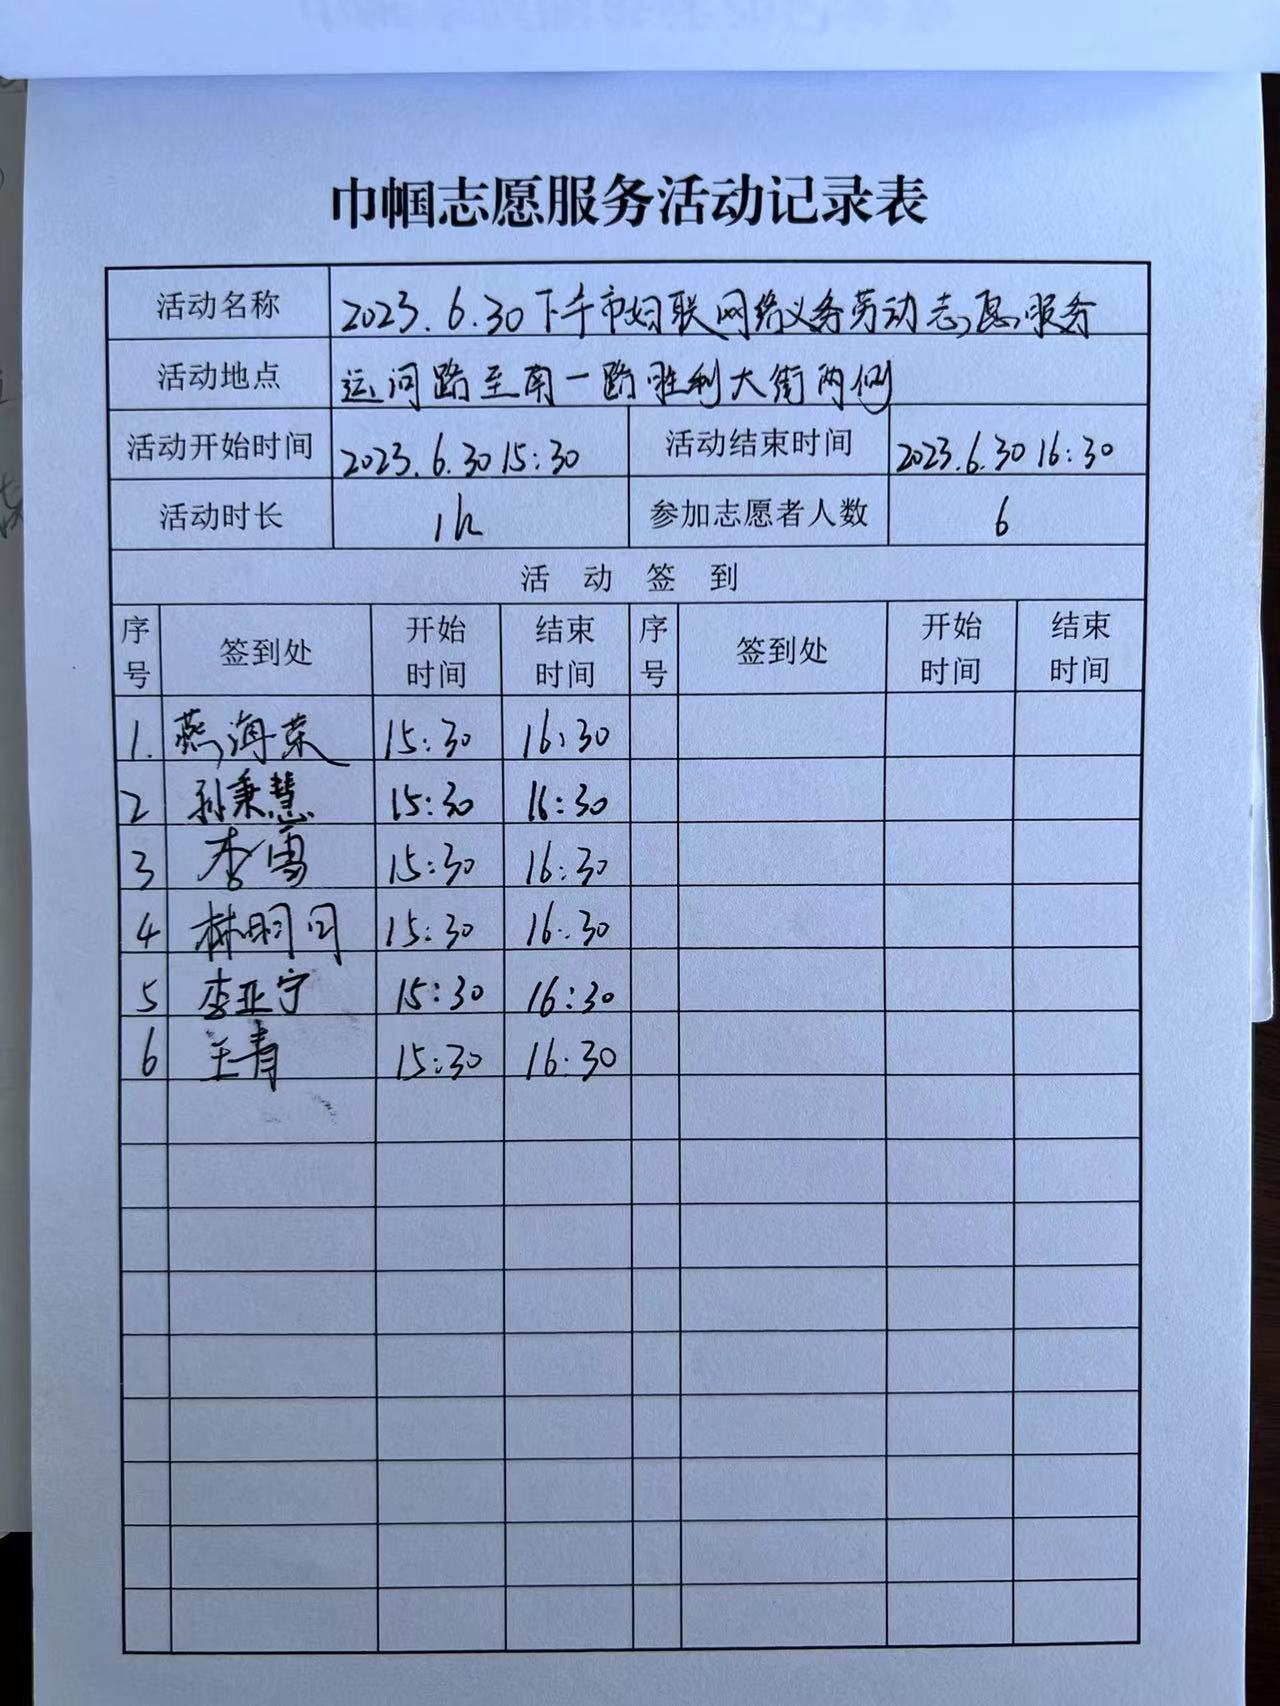 巾帼志愿服务活动记录表
活动名称 2023.6.30下午市妇联网络义务劳动志愿服务
活动地点 运河路至南一路胜利大街两侧
活动开始时间 2023.6.30 15:30 活动结束时间 2023.6.30 16:30
活动时长 1h 参加志愿者人数 6
活动签到
序号 签到处 开始时间 结束时间 序号 签到处 开始时间 结束时间
1. 燕海荣 15:30 16:30
2 孙秉慧 15:30 16:30
3 李雪 15:30 16:30
4 15:30 16:30
5 李亚宁 15:30 16:30
6 王青 15:30 16:30